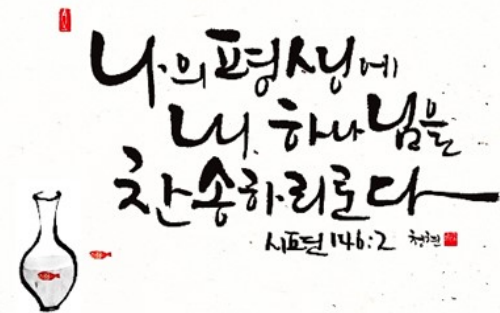 나의 평생에
내 하나님을
찬송하리로다
시편 146:2